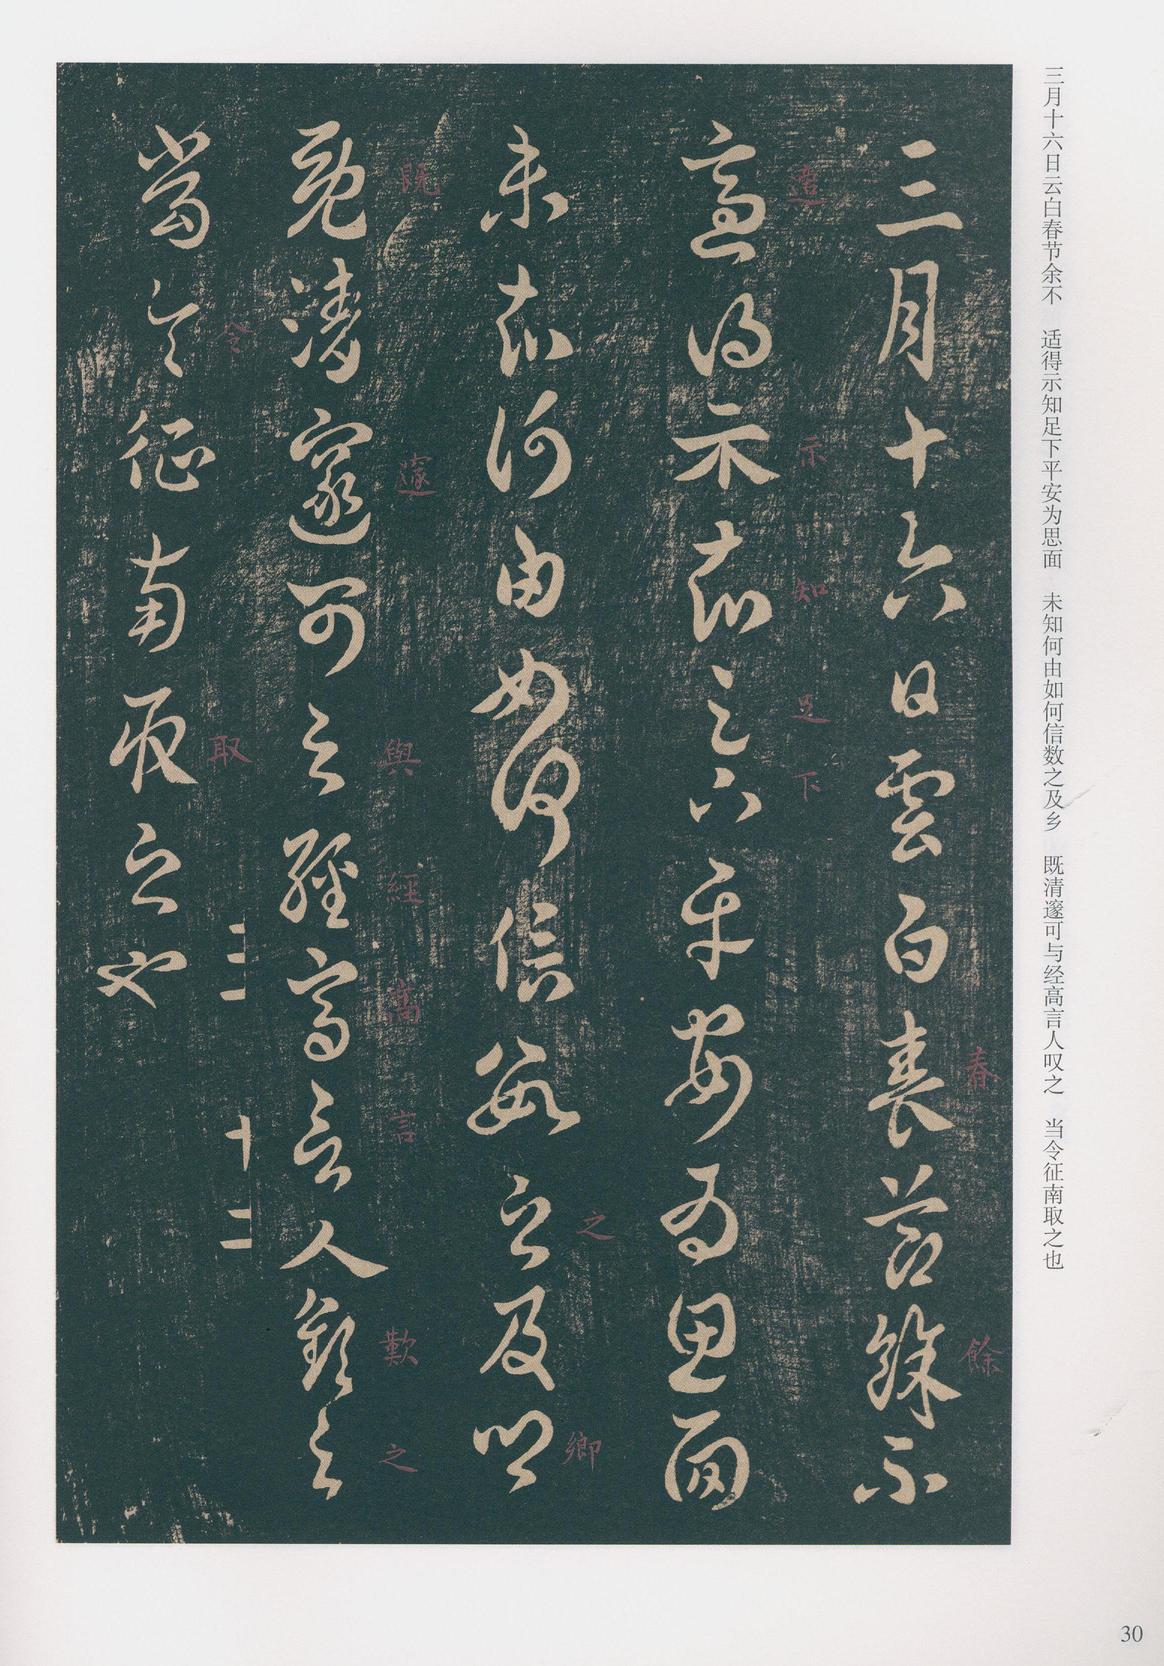 三月十六日云白春节余不　适得示知足下平安为思面　未知何由如何信数之及乡　既清邃可与经高言人叹之　当令征南取之也
三月十六日雲白春節餘不
適得示知足下平安為思面
未知何由如何信數之及鄉
既清邃可與經高言人歎之
當令征南取之也
春
餘
適
示
知
足
下
之
鄉
既
邃
與
經
高
言
歎
之
令
取
二二
十二
30